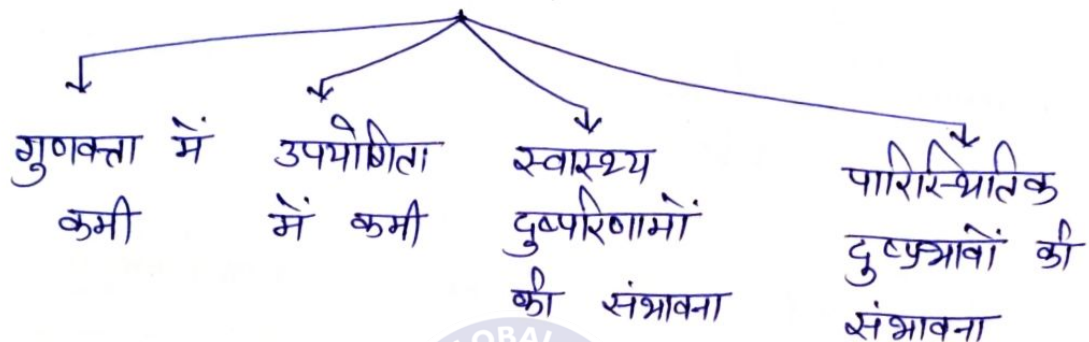 गुणवत्ता में
कमी
उपयोगिता
में कमी
स्वास्थ्य
दुष्परिणामों
की संभावना
पारिस्थितिक
दुष्प्रभावों की
संभावना
OBAL